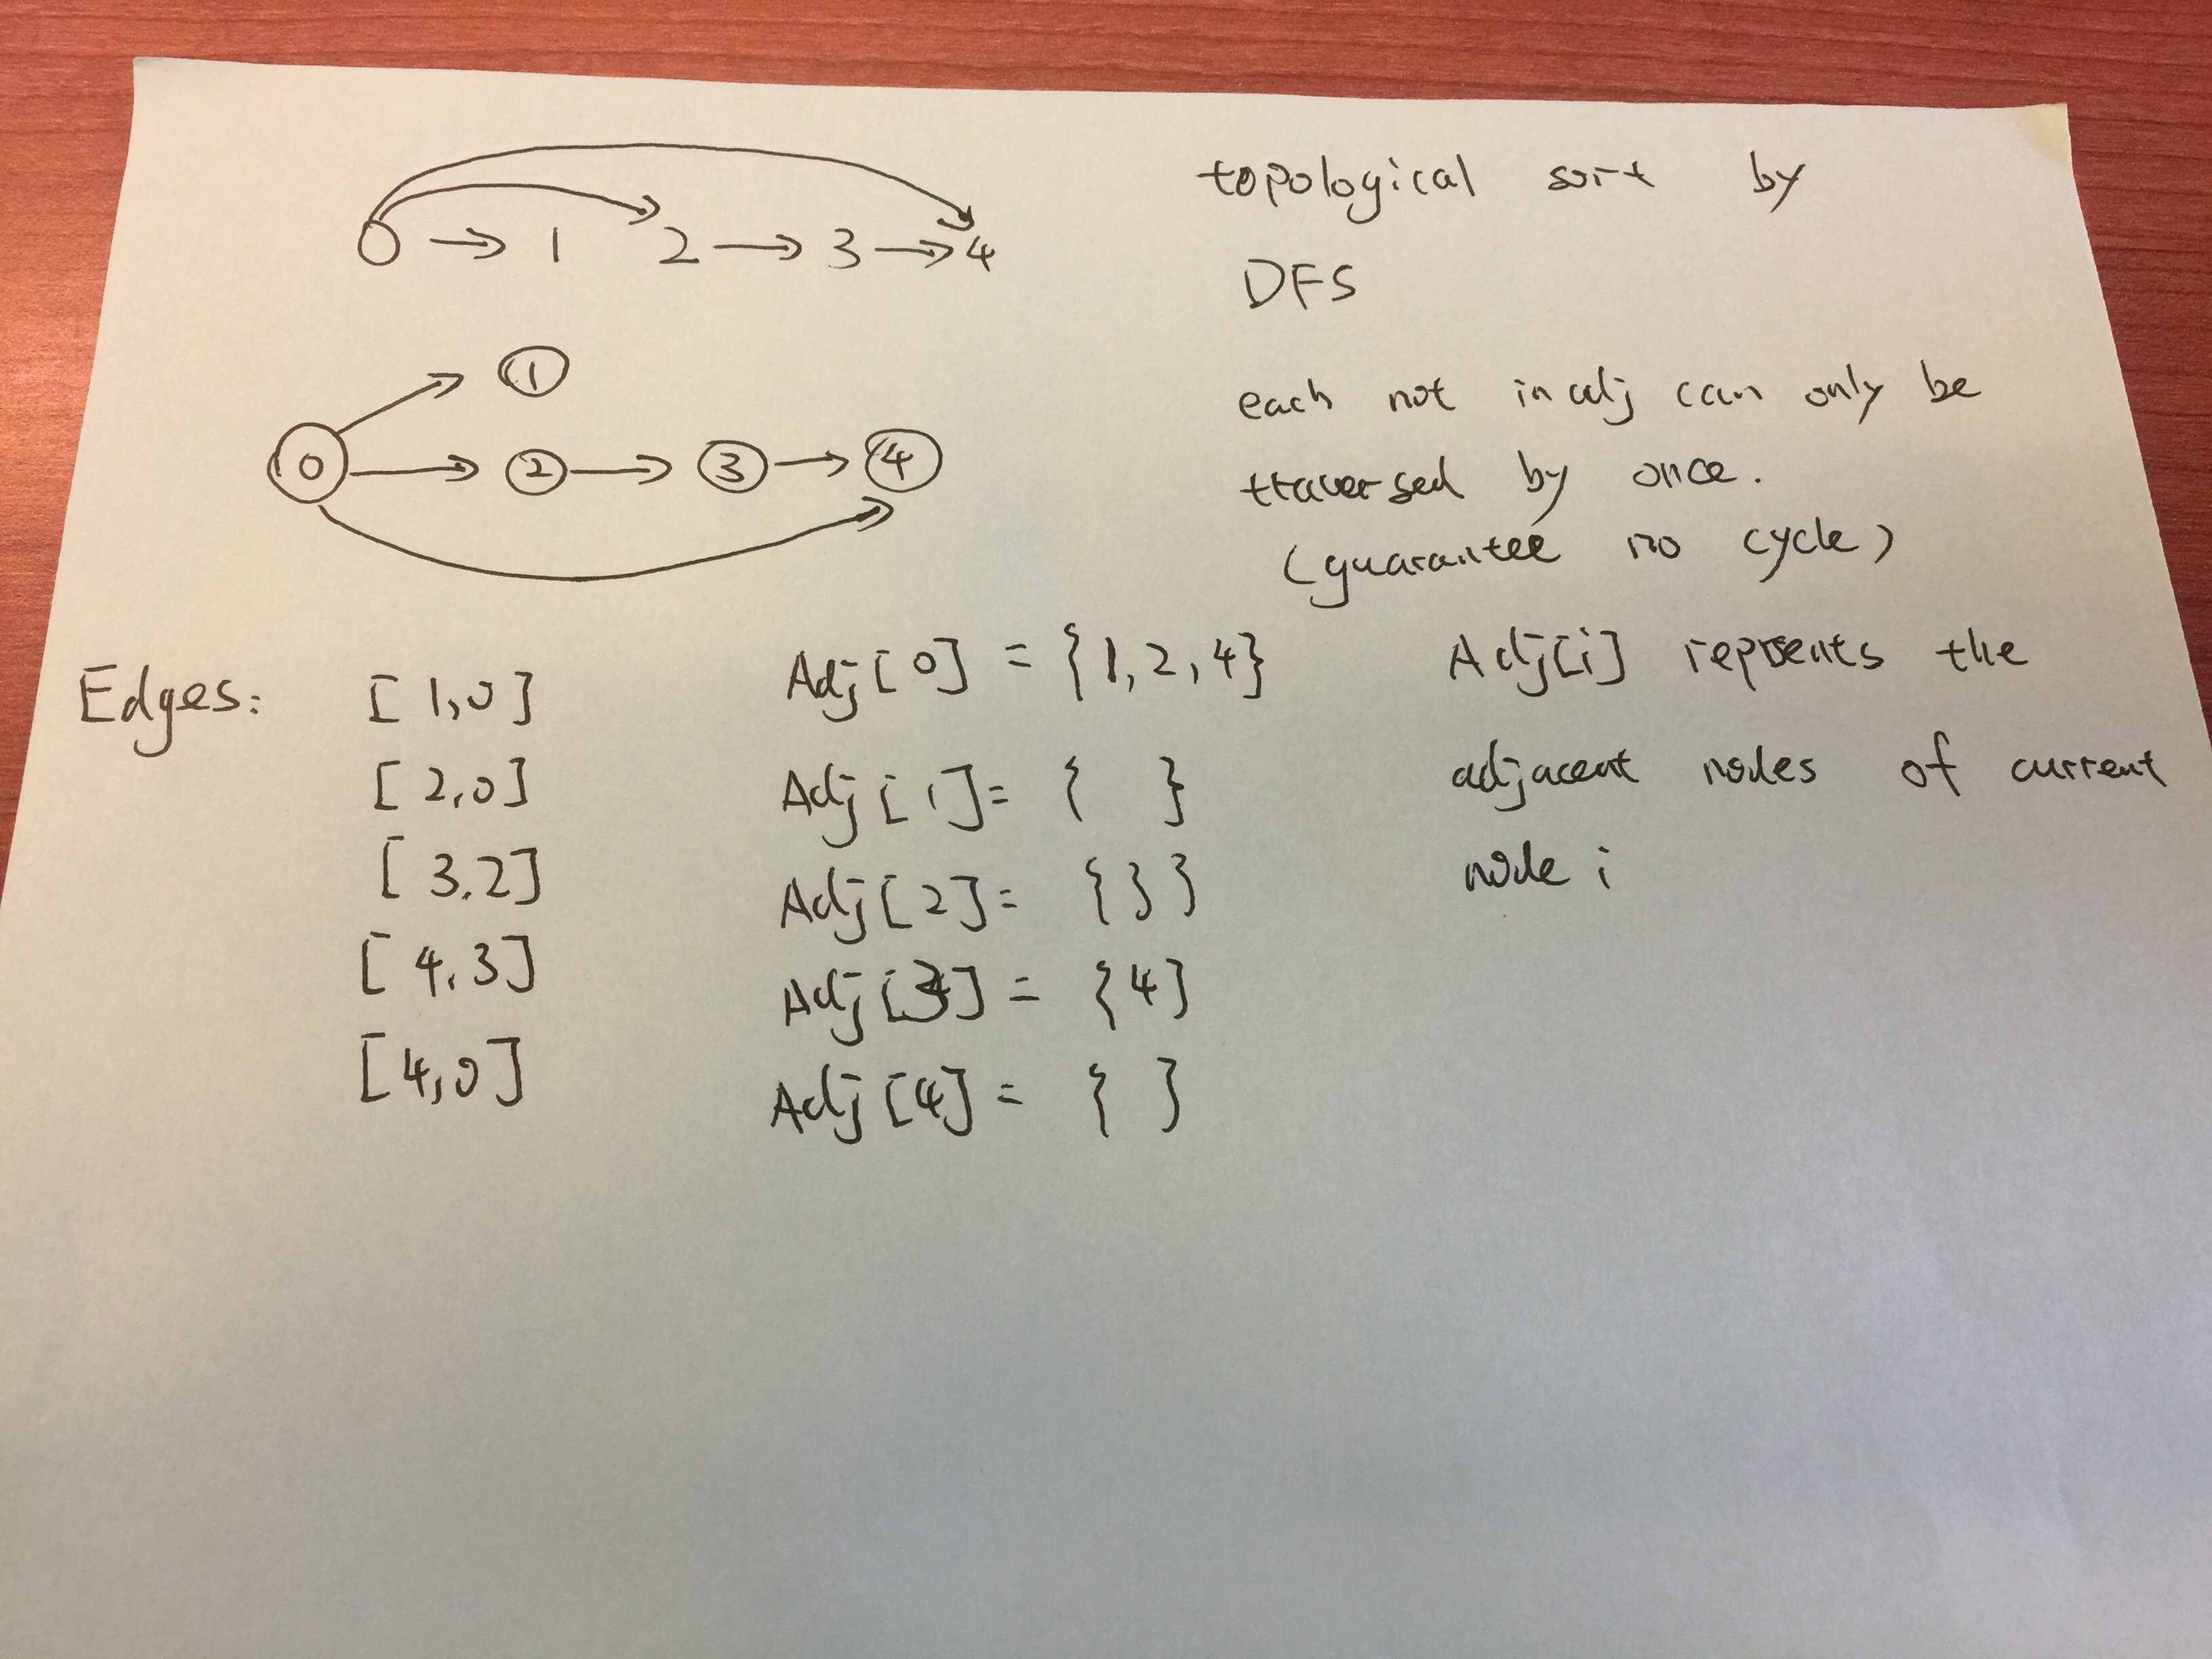 0 → 1 2 → 3 → 4
topological sort by
DFS
1
0 → 2 → 3 → 4
each not in adj can only be
traversed by once.
(guarantee no cycle)
Edges: [1,0]
[2,0]
[3,2]
[4,3]
[4,0]
Adj[0] = {1,2,4}
Adj[1] = { }
Adj[2] = {3}
Adj[3] = {4}
Adj[4] = { }
Adj[i] repesents the
adjacent nodes of current
node i